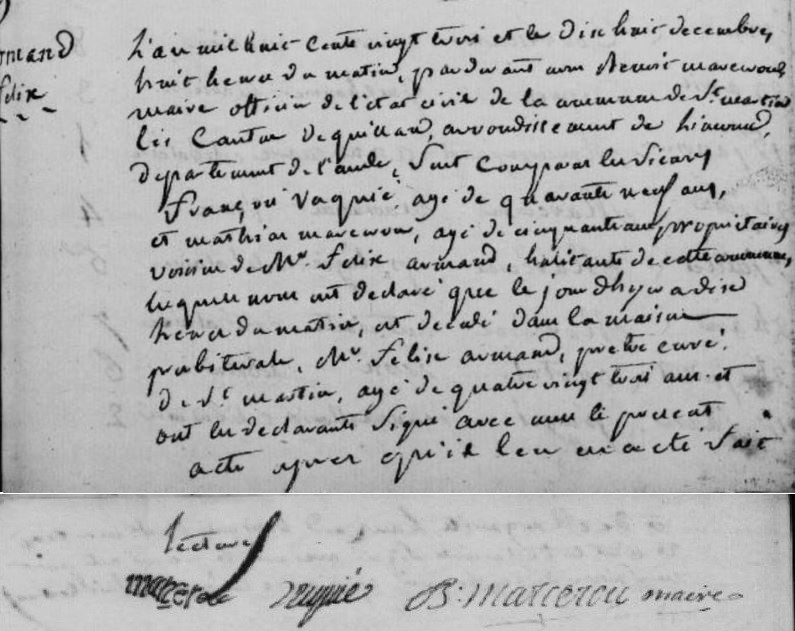 armand
felix
L'an mil huit cents vingt trois et le dix huit decembre,
huit heures du matin, pardevant nous Benoit marcerou
maire officier de l'état civil de la commune de St martin
lis Canton de quillan, arrondissement de Limoux,
departement de l'aude, sont comparus les sieurs
françois vaquié, agé de quarante neuf ans,
et mathias marcerou, agé de cinquante ans proprietaires
voisins de Mr. felix armand, habitants de cette commune,
lesquels nous ont declaré que le jour d'hyer a dix
heures du matin, est decedé dans la maison
presbiterale, Mr. felix armand, pretre curé
de St martin, agé de quatre vingt trois ans et
ont les declarants signé avec nous le present
acte apres qu'il leur en a été fait
lecture
marcerou vaquié B. Marcerou maire